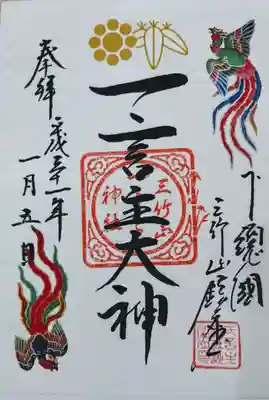 下總國
三竹山鎮座
一言主大神
三竹山
神社
奉拝
平成三十一年
一月五日